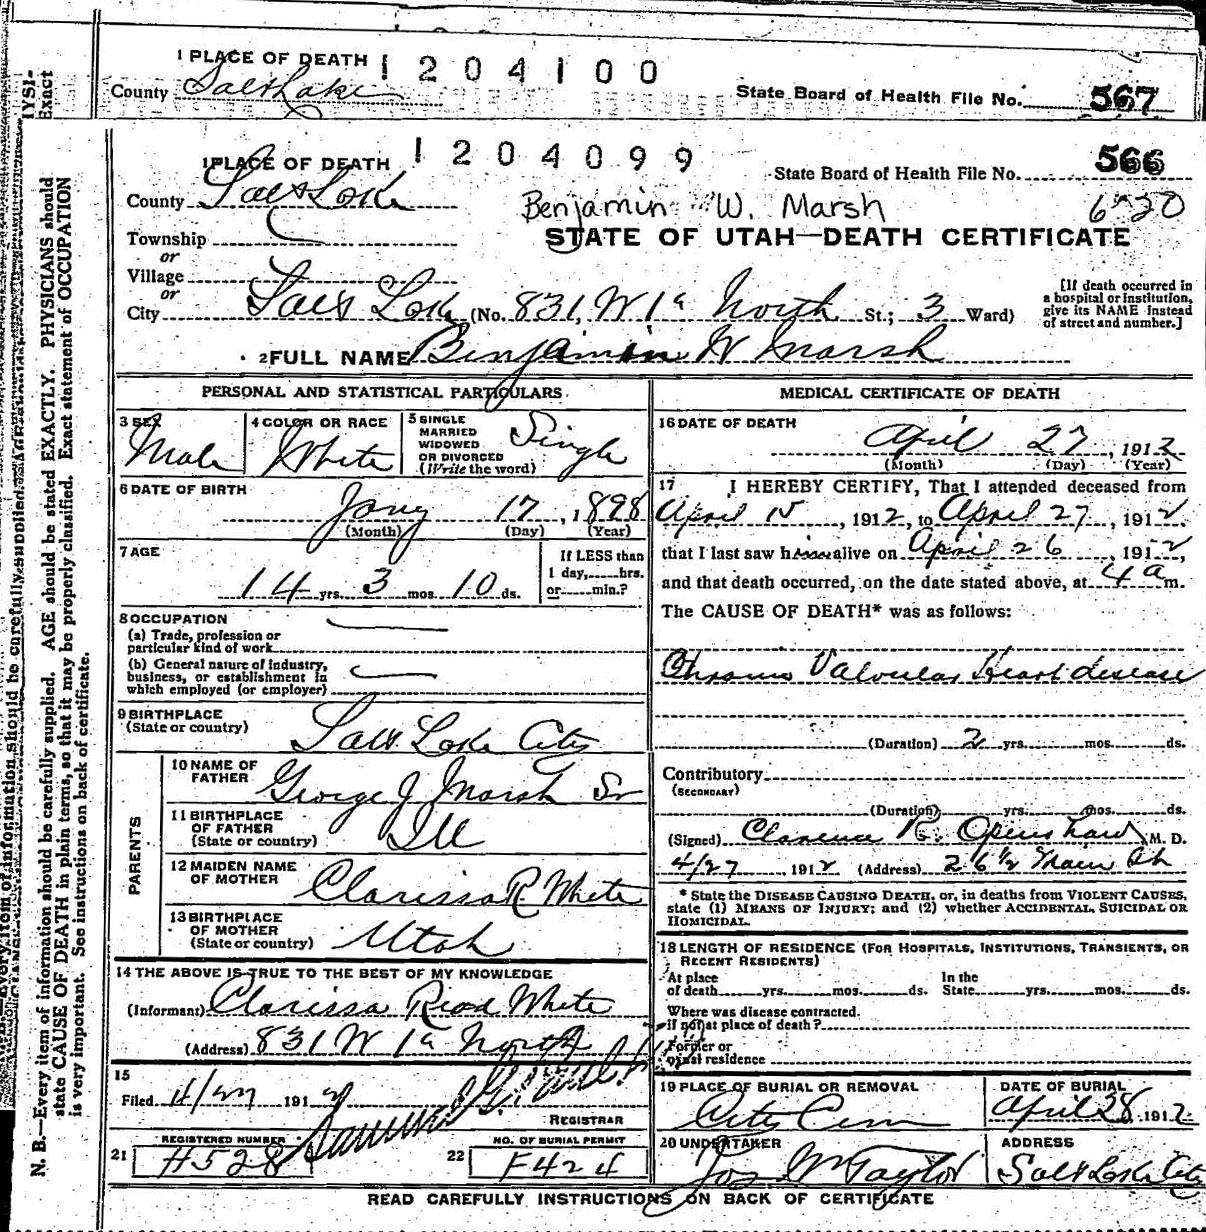 1 PLACE OF DEATH 1204100
County Salt Lake
State Board of Health File No. 567
1 PLACE OF DEATH 1204099
State Board of Health File No. 566
County Salt Lake
Benjamin W. Marsh
Township
STATE OF UTAH—DEATH CERTIFICATE
or
Village
or
City Salt Lake (No. 831 W 1st North St.; 3 Ward)
[If death occurred in
a hospital or institution,
give its NAME instead
of street and number.]
2 FULL NAME Benjamin W Marsh
PERSONAL AND STATISTICAL PARTICULARS
3 SEX Male
4 COLOR OR RACE White
5 SINGLE
MARRIED
WIDOWED
OR DIVORCED
(Write the word)
Single
6 DATE OF BIRTH
Jany 17, 1898
(Month) (Day) (Year)
7 AGE
14 yrs. 3 mos. 10 ds.
If LESS than
1 day, hrs.
or min.?
8 OCCUPATION
(a) Trade, profession or
particular kind of work
(b) General nature of industry,
business, or establishment in
which employed (or employer)
9 BIRTHPLACE
(State or country) Salt Lake City
PARENTS
10 NAME OF
FATHER George J Marsh Sr
11 BIRTHPLACE
OF FATHER
(State or country) Ill
12 MAIDEN NAME
OF MOTHER Clarissa R White
13 BIRTHPLACE
OF MOTHER
(State or country) Utah
14 THE ABOVE IS TRUE TO THE BEST OF MY KNOWLEDGE
(Informant) Clarissa Read White
(Address) 831 W 1st North
15
Filed 4/27 1912
REGISTRAR
REGISTERED NUMBER
21 H528
NO. OF BURIAL PERMIT
22 F424
MEDICAL CERTIFICATE OF DEATH
16 DATE OF DEATH
April 27, 1912
(Month) (Day) (Year)
17 I HEREBY CERTIFY, That I attended deceased from
April 15, 1912, to April 27, 1912,
that I last saw him alive on April 26, 1912,
and that death occurred, on the date stated above, at 4 a m.
The CAUSE OF DEATH* was as follows:
Chronic Valvular Heart disease
(Duration) 2 yrs. mos. ds.
Contributory
(SECONDARY)
(Duration) yrs. mos. ds.
(Signed) Clarence G. Openshaw M. D.
4/27, 1912 (Address) 26 1/2 Main St
* State the DISEASE CAUSING DEATH, or, in deaths from VIOLENT CAUSES,
state (1) MEANS OF INJURY; and (2) whether ACCIDENTAL, SUICIDAL OR
HOMICIDAL.
18 LENGTH OF RESIDENCE (FOR HOSPITALS, INSTITUTIONS, TRANSIENTS, OR
RECENT RESIDENTS)
At place
of death yrs. mos. ds.
In the
State yrs. mos. ds.
Where was disease contracted.
if not at place of death?
Former or
usual residence
19 PLACE OF BURIAL OR REMOVAL
City Cem
DATE OF BURIAL
April 28 1912
20 UNDERTAKER
Jos Wm Taylor
ADDRESS
Salt Lake City
READ CAREFULLY INSTRUCTIONS ON BACK OF CERTIFICATE
N. B.—Every item of information should be carefully supplied. AGE should be stated EXACTLY. PHYSICIANS should
state CAUSE OF DEATH in plain terms, so that it may be properly classified. Exact statement of OCCUPATION
is very important. See instructions on back of certificate.